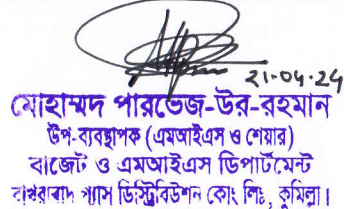 21-04-24
মোহাম্মদ পারভেজ-উর-রহমান
উপ-ব্যবস্থাপক (এমআইএস ও শেয়ার)
বাজেট ও এমআইএস ডিপার্টমেন্ট
বাখরাবাদ গ্যাস ডিস্ট্রিবিউশন কোং লিঃ, কুমিল্লা।